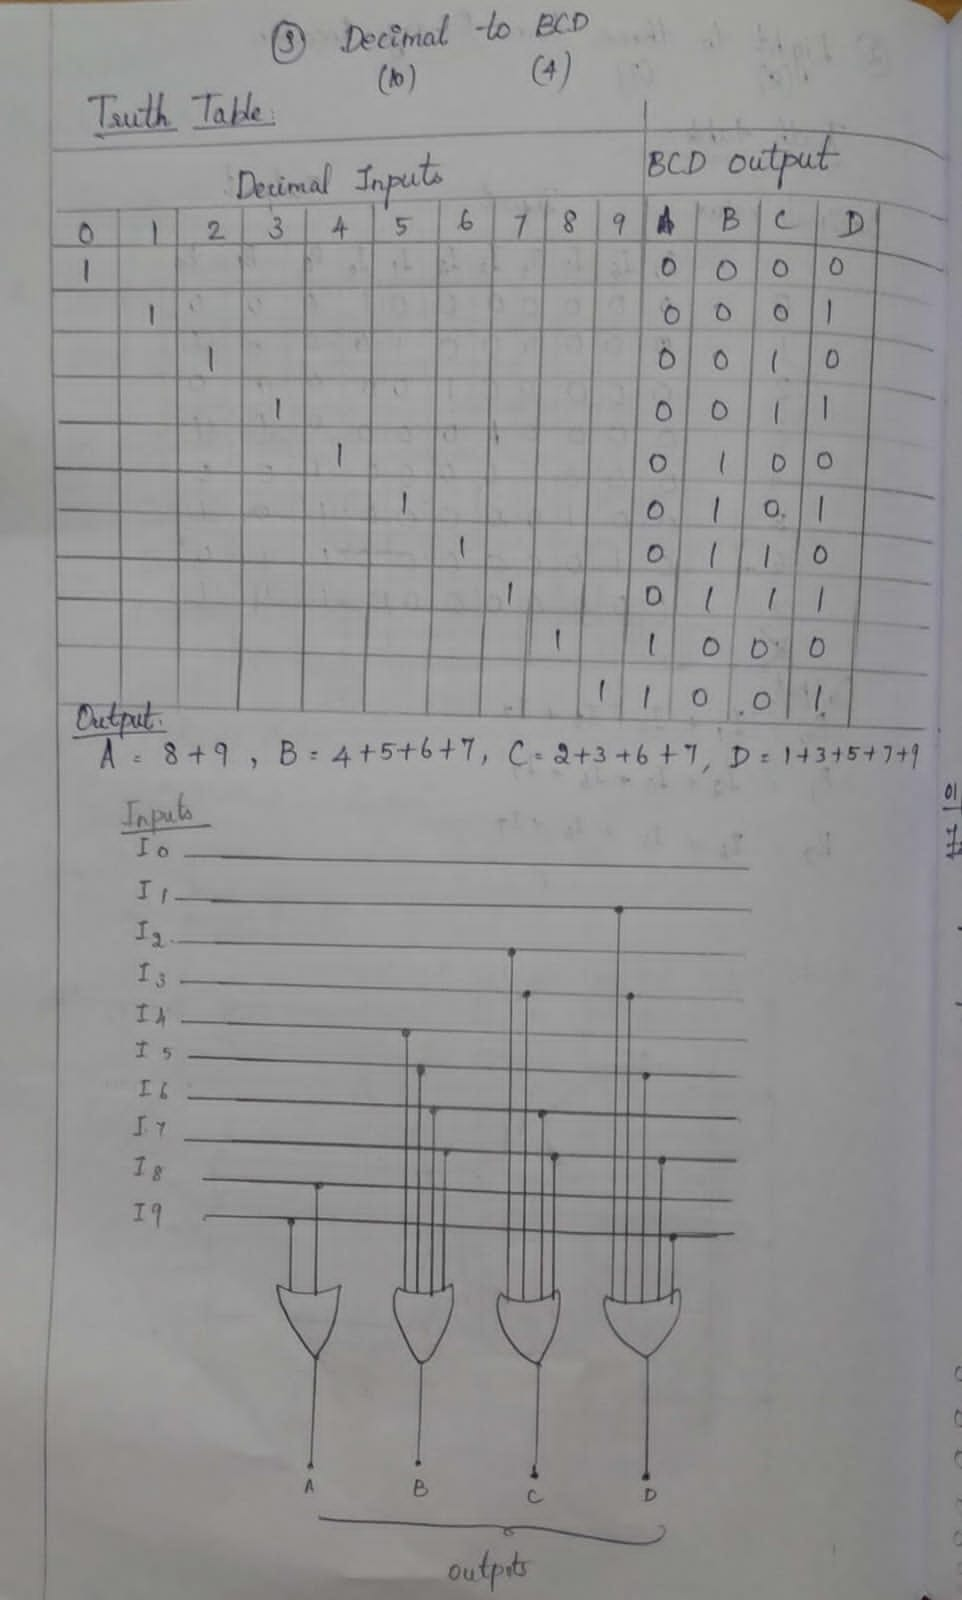 ③ Decimal to BCD
(10) (4)
Truth Table:
Decimal Inputs BCD output
0 1 2 3 4 5 6 7 8 9 A B C D
1 0 0 0 0
1 0 0 0 1
1 0 0 1 0
1 0 0 1 1
1 0 1 0 0
1 0 1 0 1
1 0 1 1 0
1 0 1 1 1
1 1 0 0 0
1 1 0 0 1
Output:
A = 8+9, B = 4+5+6+7, C = 2+3+6+7, D = 1+3+5+7+9
Inputs
I0
I1
I2
I3
I4
I5
I6
I7
I8
I9
A B C D
outputs